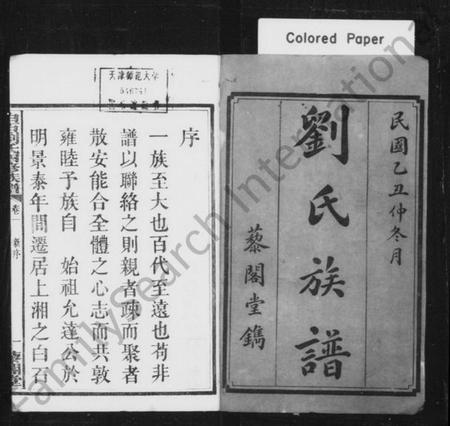 Colored Paper
民國乙丑仲冬月
劉氏族譜
藜閣堂鐫
天津師范大学
序
一族至大也百代至遠也茍非
譜以聯絡之則親者疎而聚者
散安能合全體之心志而共敦
雍睦予族自 始祖允達公於
明景泰年間遷居上湘之白石
FamilySearch International